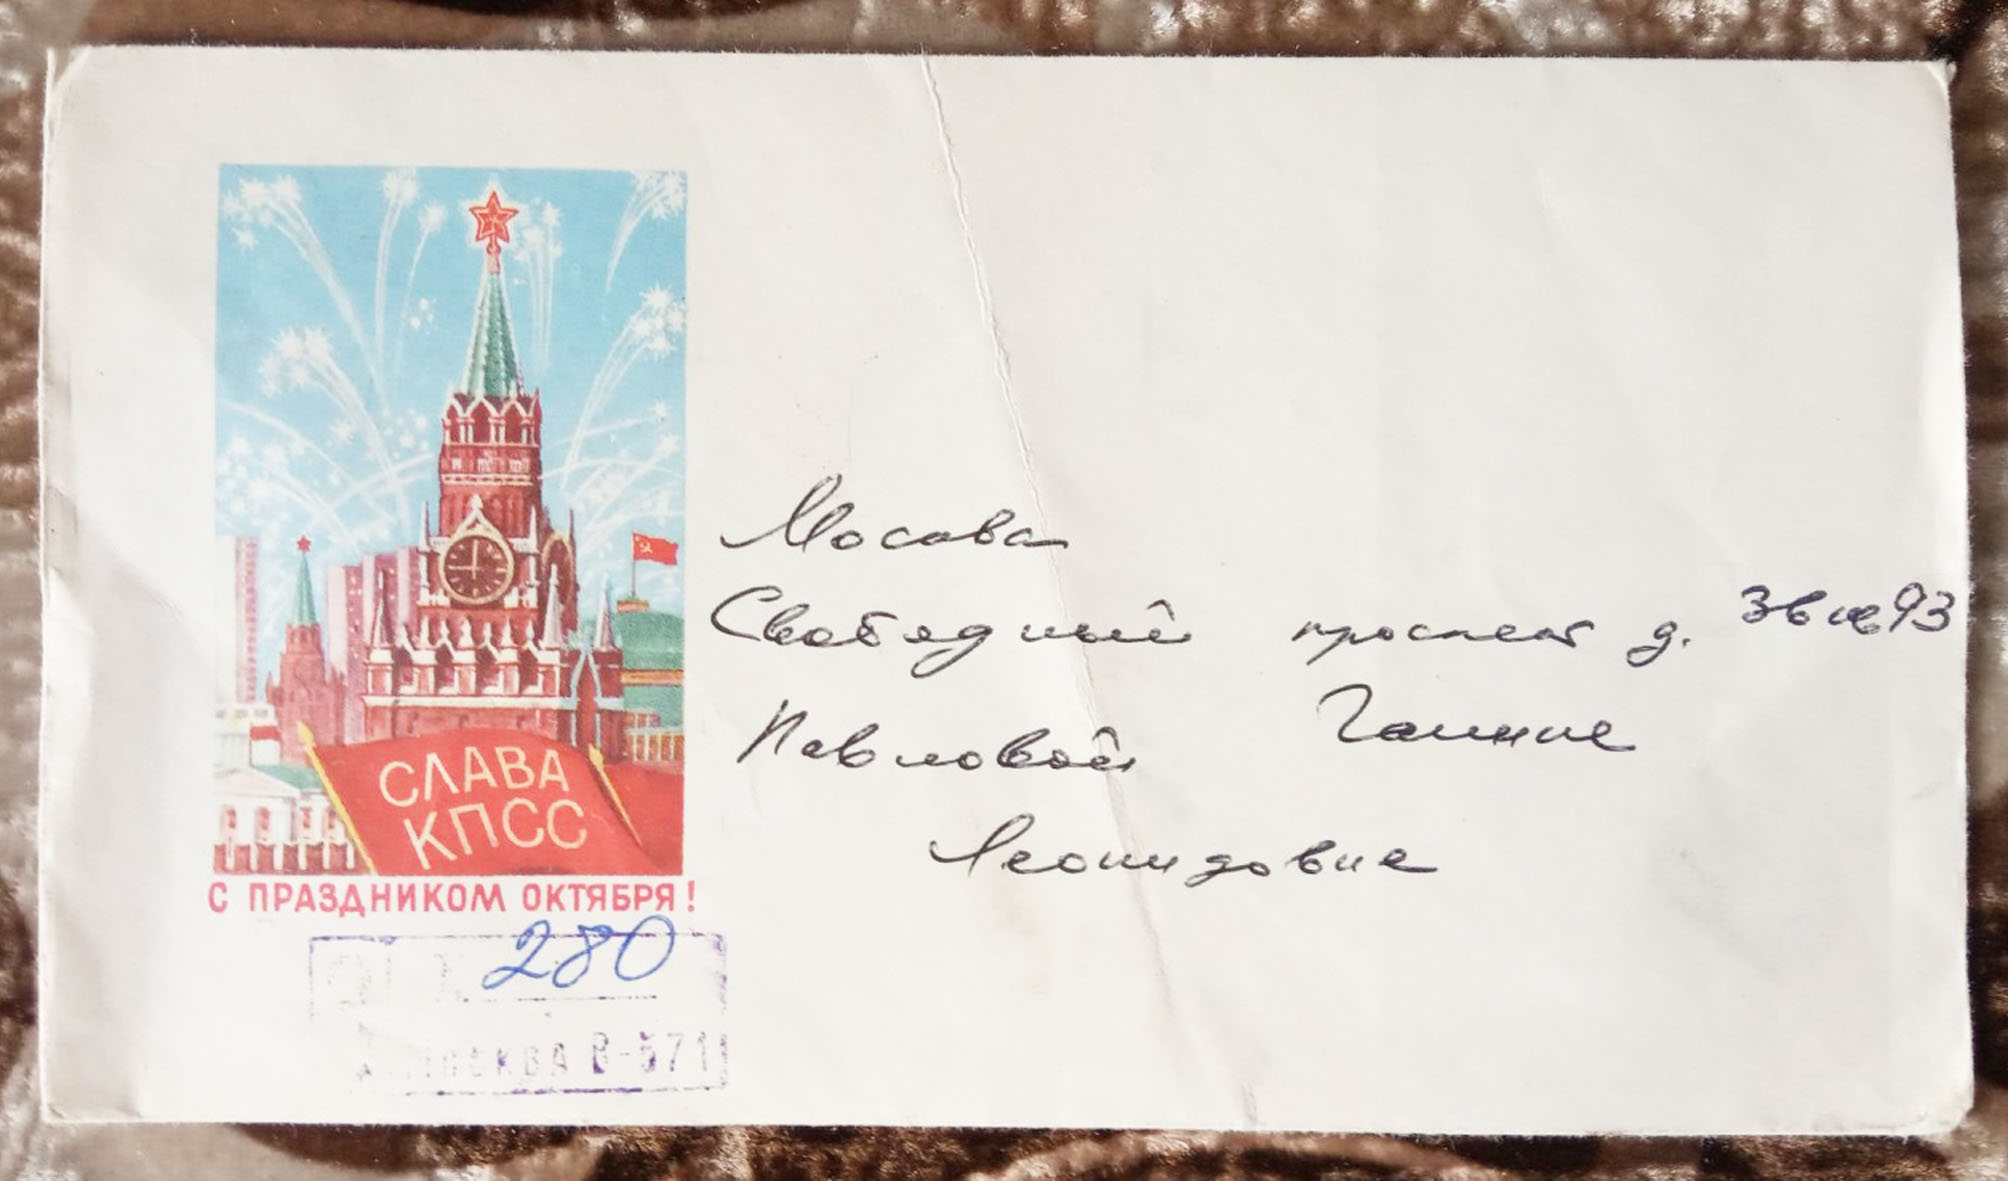 СЛАВА
КПСС
С ПРАЗДНИКОМ ОКТЯБРЯ!
280
МОСКВА В-571
Москва
Свободный проспект д.
Павловой Галине
Леонидовне